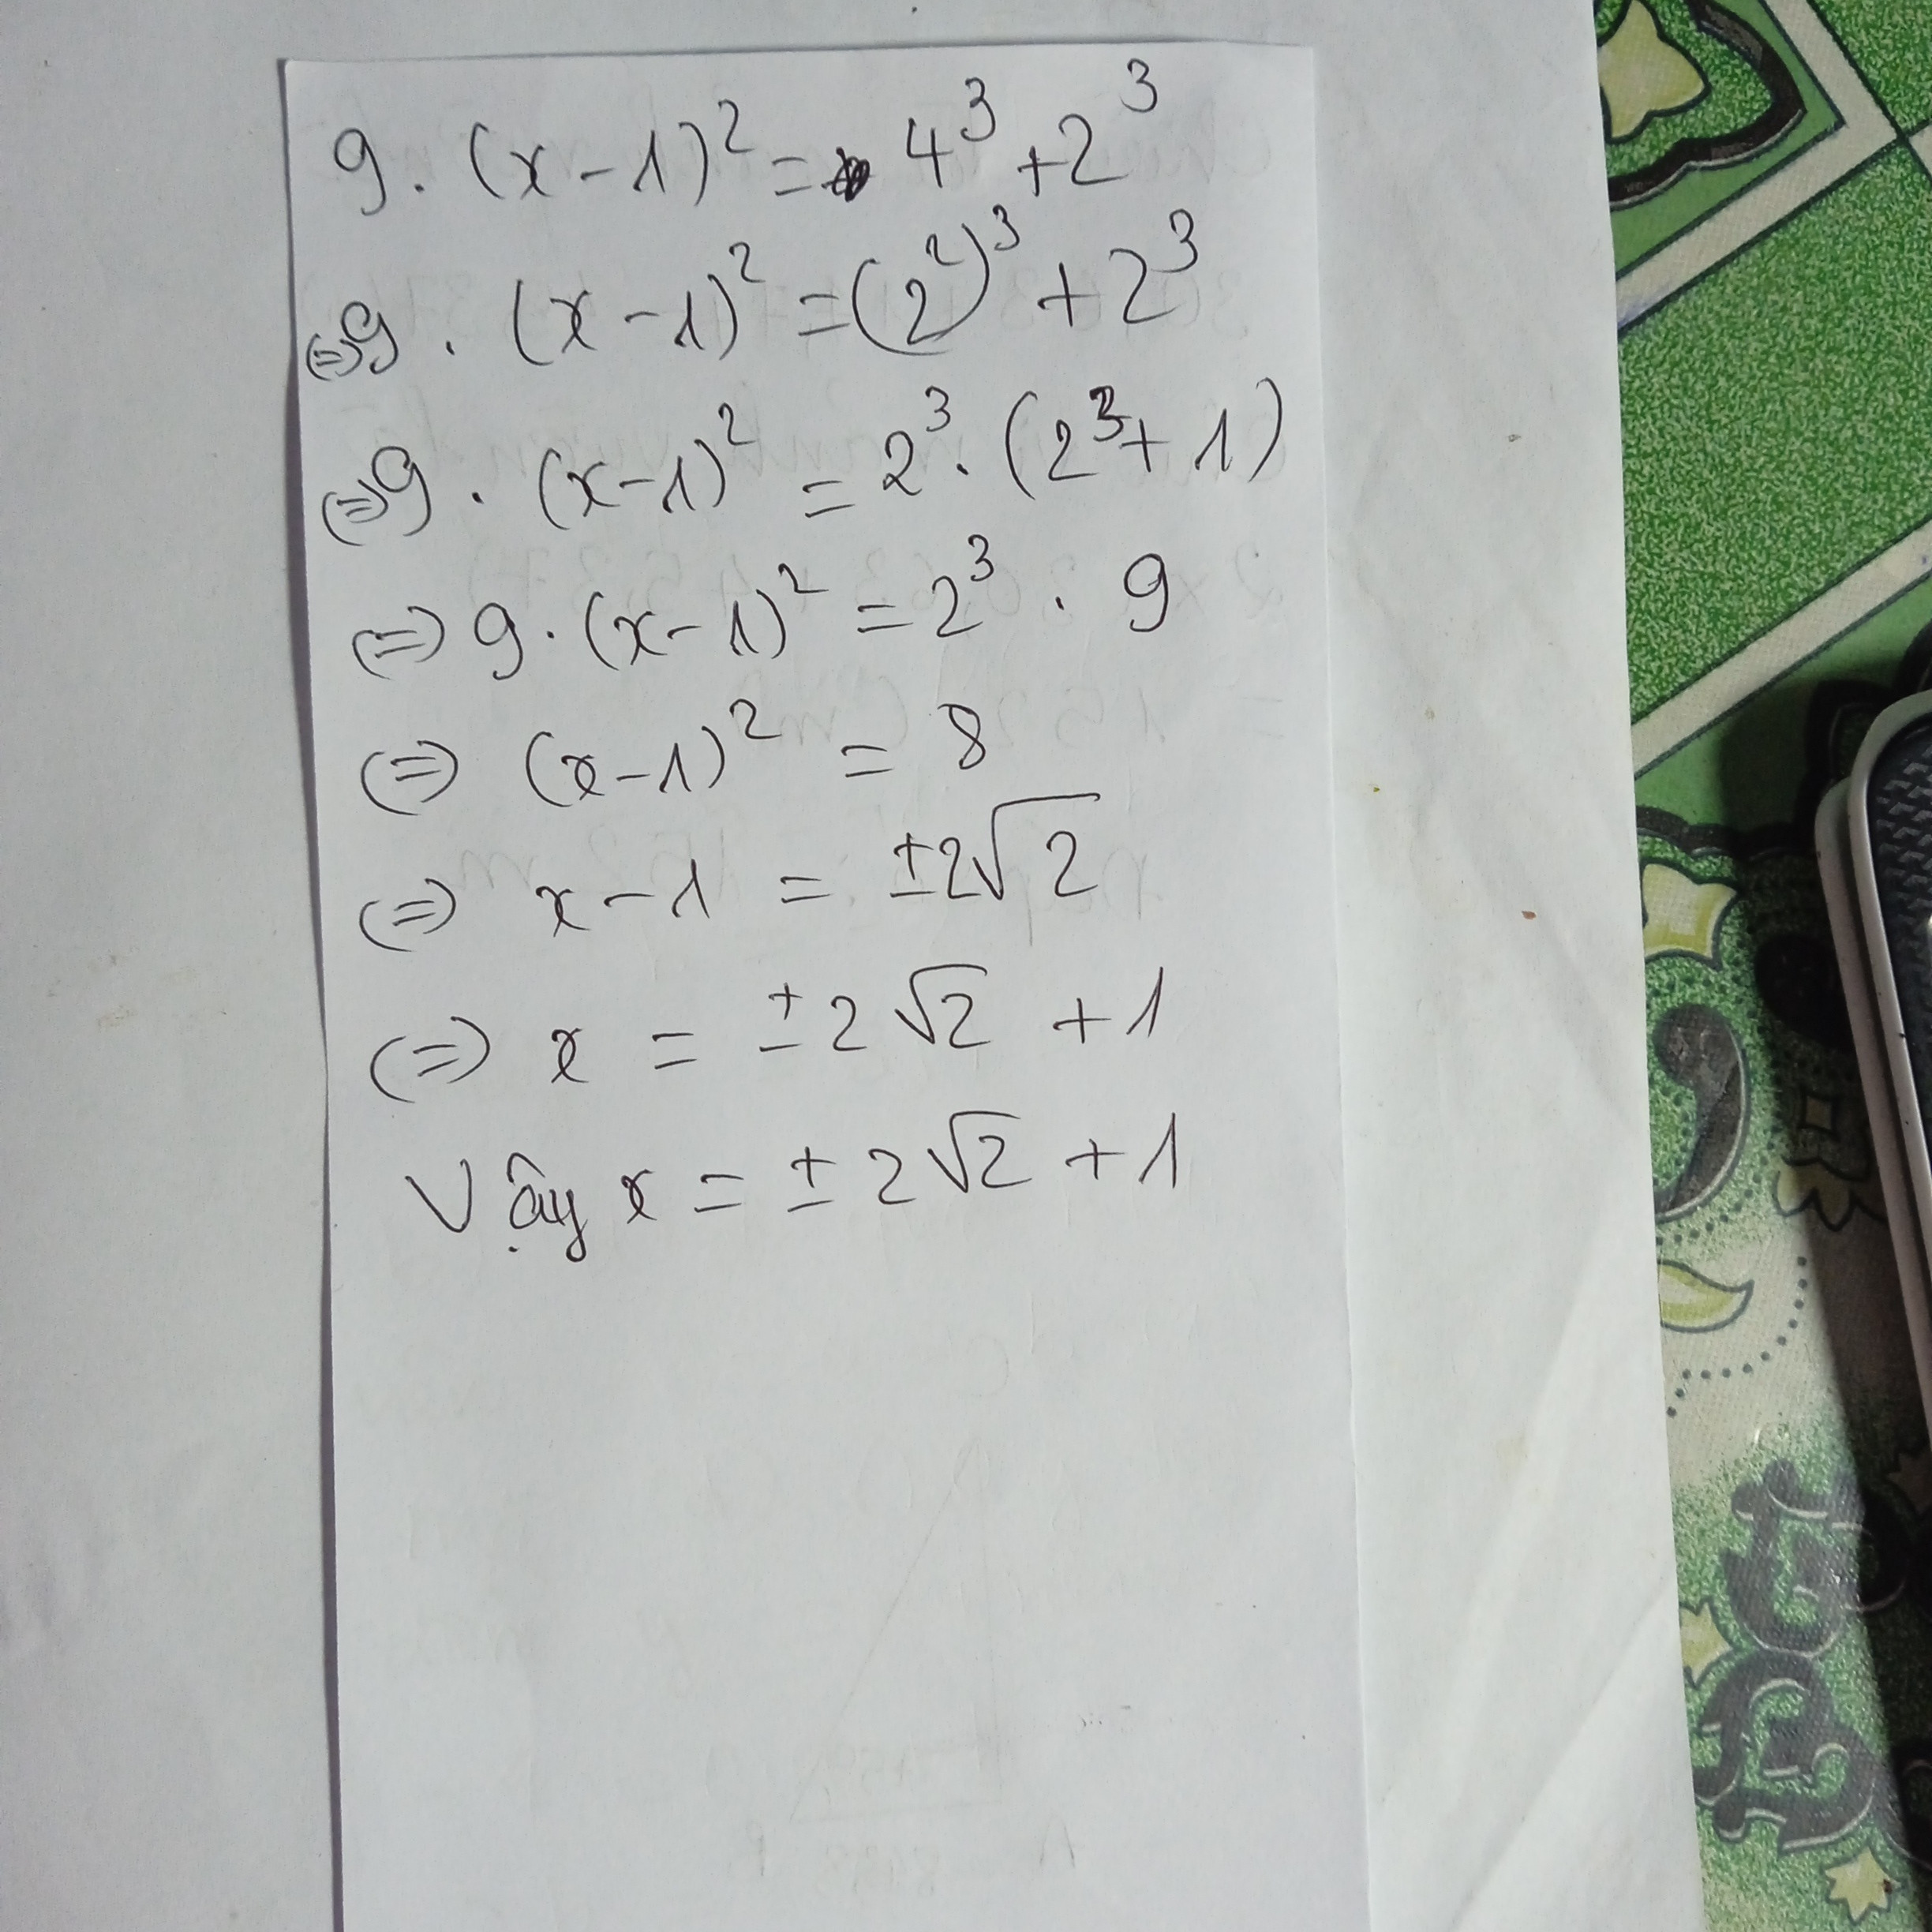 9 . (x - 1)² = 4³ + 2³
(=) 9 . (x - 1)² = (2²)³ + 2³
(=) 9 . (x - 1)² = 2³ . (2³ + 1)
(=) 9 . (x - 1)² = 2³ . 9
(=) (x - 1)² = 8
(=) x - 1 = ±2√2
(=) x = ±2√2 + 1
Vậy x = ±2√2 + 1